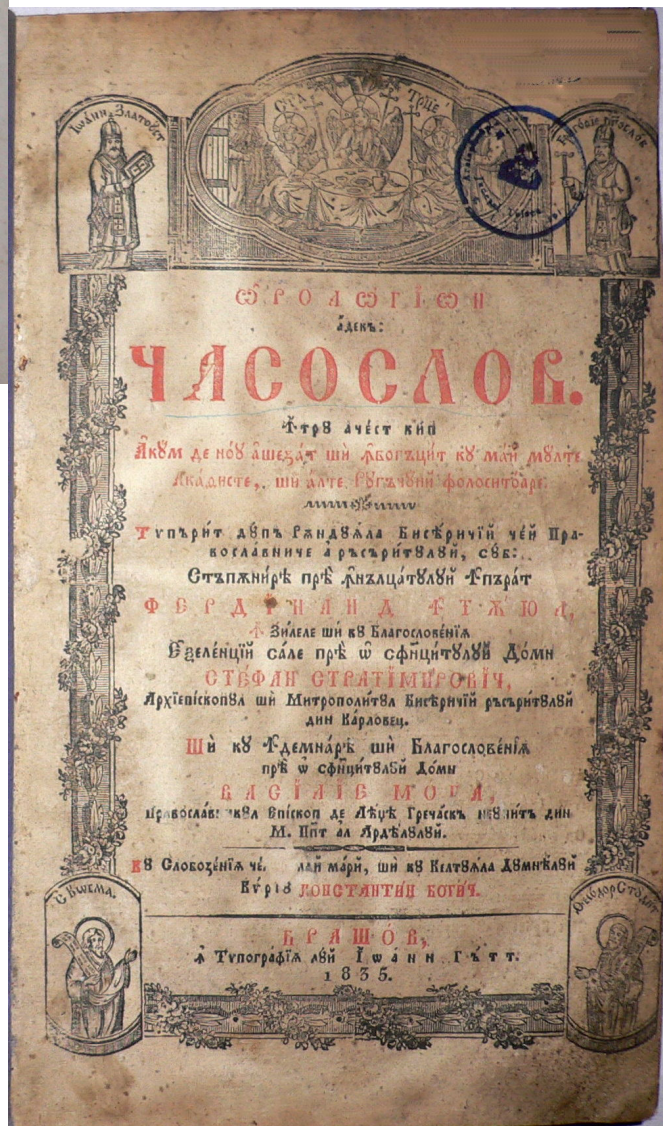 СТА ТРЦЕ
ІѠАНН ЗЛАТОꙊСТ
Ѡ҆РОЛѠГІѠН
а҆декъ:
ЧАСОСЛОВ.
Ꙟтрꙋ ачест кип
А҆кꙋм де ноꙋ а҆шезат ши ꙟ҆богъцит кꙋ май мꙋлте
Акаѳисте, ши алте Рꙋгъчюни фолоситоаре.
Типърит дꙋпъ Рѫндꙋꙗла Бисѣричїй чей Пра-
вославниче а ръсъритꙋлꙋй, сꙋб:
Стъпѫнирѣ прѣ ꙟ҆нълцатꙋлꙋй Ꙟпърат
ФЕРДИНАНД ꙞТѪЮЛ,
Ꙟ Зилеле ши кꙋ Благословенїѧ
Еѯеленцїй сале прѣ ѿ сфинцитꙋлꙋй Домн
СТЕФАН СТРАТІМИРОВИЧ,
Архїепископꙋл ши Митрополитꙋл Бисѣричїй ръсъритꙋлꙋй
дин Карловец.
Ши кꙋ Ꙟдемнарѣ ши Благословенїѧ
прѣ ѿ сфинцитꙋлꙋй Домн
ВАСІЛІЕ МОГА,
Епископ де Лѣџе Гречаскъ дин
М. Прⷩ҇т ал Ардѣлꙋлꙋй.
Кꙋ Слобозенїѧ мари, ши кꙋ Келтꙋꙗла Дꙋмнѣлꙋй
Кѵрїꙋ КОНСТАНТИН БОГИЧ.
С КОЗМА.
Ѳеодор Стꙋдит
БРАШОВ,
Ꙟ Типографїѧ лꙋй Іѡанн Гътт.
1835.